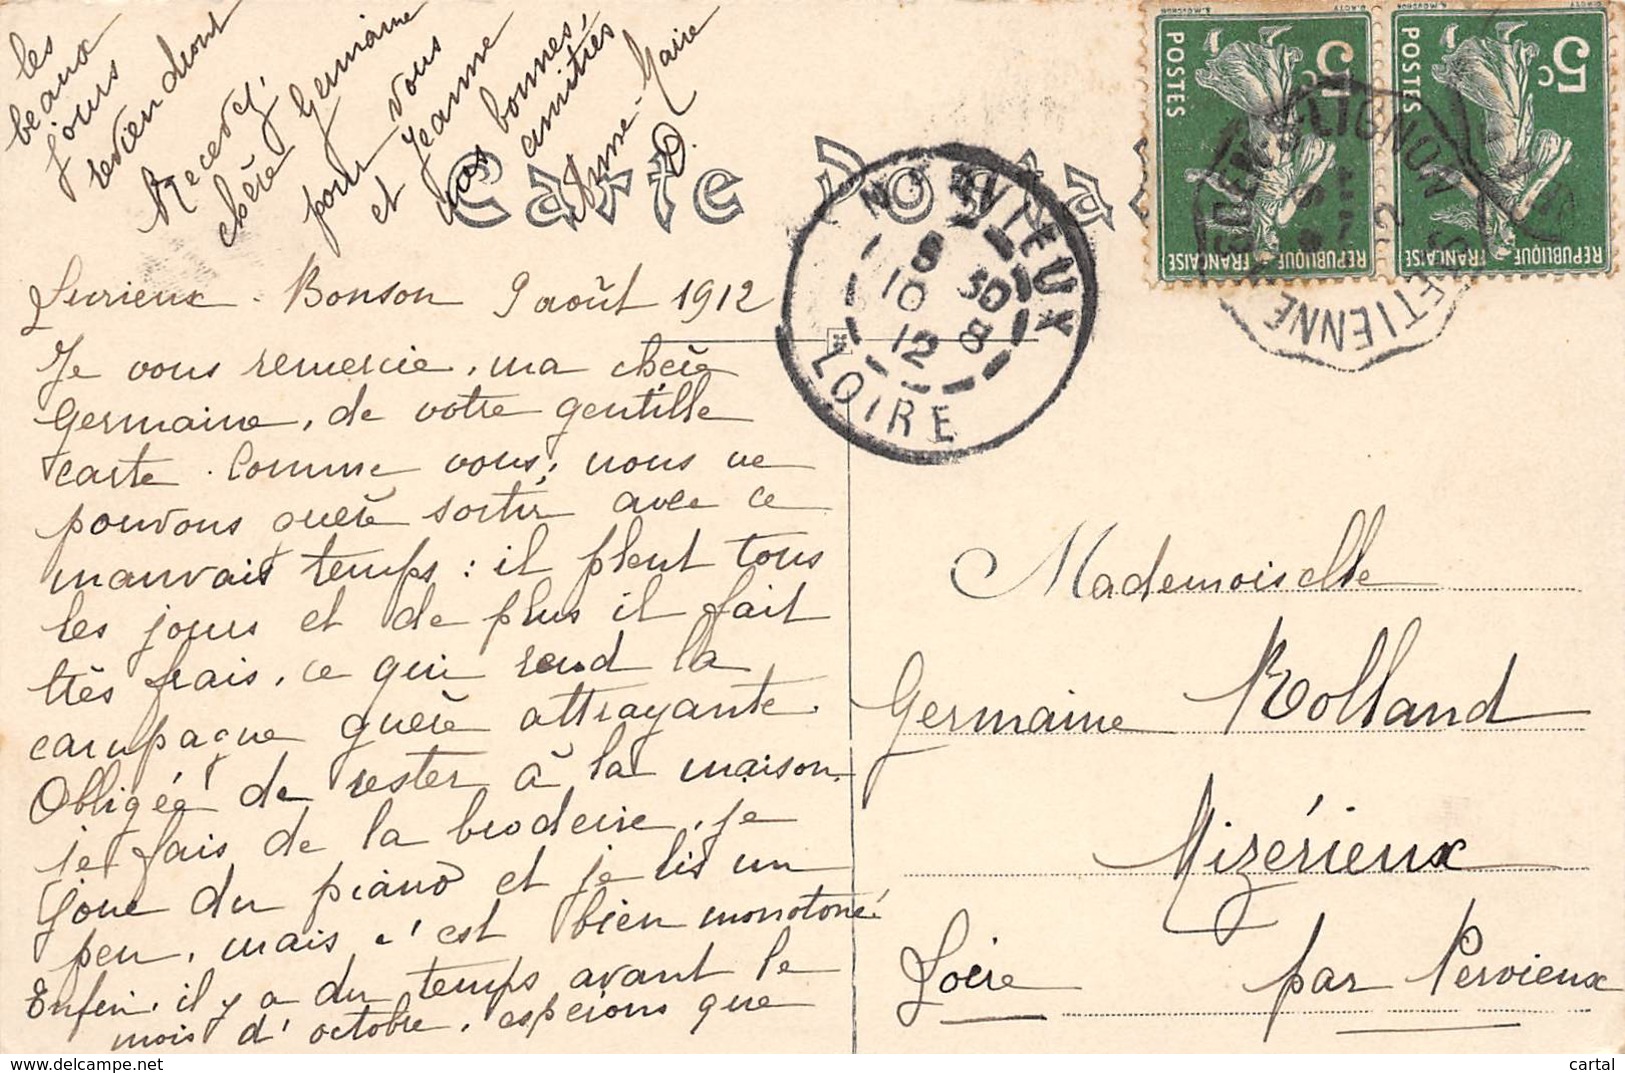 Carte Posta
Surieux - Bonson 9 août 1912
Je vous remercie, ma chère
Germaine, de votre gentille
carte. Comme vous, nous ne
pouvons guère sortir avec ce
mauvais temps : il pleut tous
les jours et de plus il fait
très frais, ce qui rend la
campagne guère attrayante.
Obligée de rester à la maison,
je fais de la broderie, je
joue du piano et je lis un
peu, mais c'est bien monotone.
Enfin, il y a du temps avant le
mois d'octobre, espérons que
les
beaux
jours
reviendront
Recevez,
chère Germaine
pour vous
et Jeanne
nos bonnes
amitiés
Anne-Marie
D.
NERVIEUX
8 30
10 8
12
LOIRE
POSTES
5c
REPUBLIQUE FRANÇAISE
POSTES
5c
REPUBLIQUE FRANÇAISE
LIGNON
ETIENNE
12
Mademoiselle
Germaine Rolland
Mizérieux
Loire par Nervieux
cartal